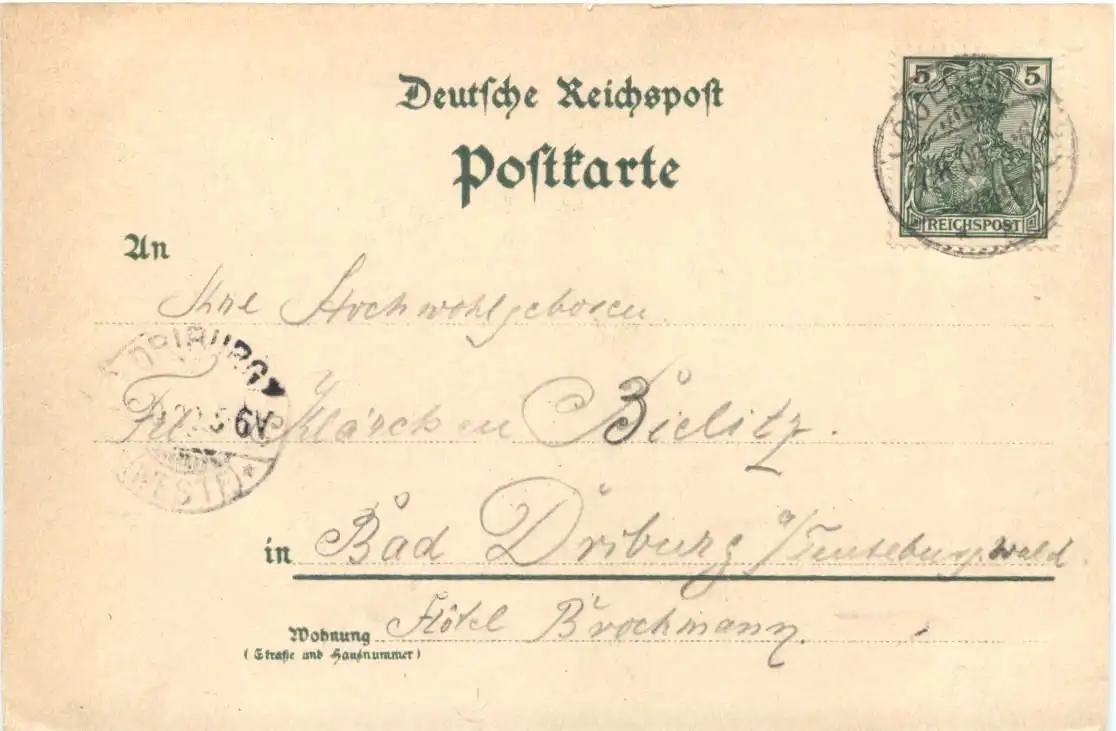 Deutsche Reichspost
Postkarte
5 5
REICHSPOST
An
Ihre Hochwohlgeboren
DRIBURG
6V
(WESTF) *
Frl. Klärchen Bielitz.
in Bad Driburg a/Teutoburgwald.
Wohnung Hôtel Brochmann.
(Straße und Hausnummer)